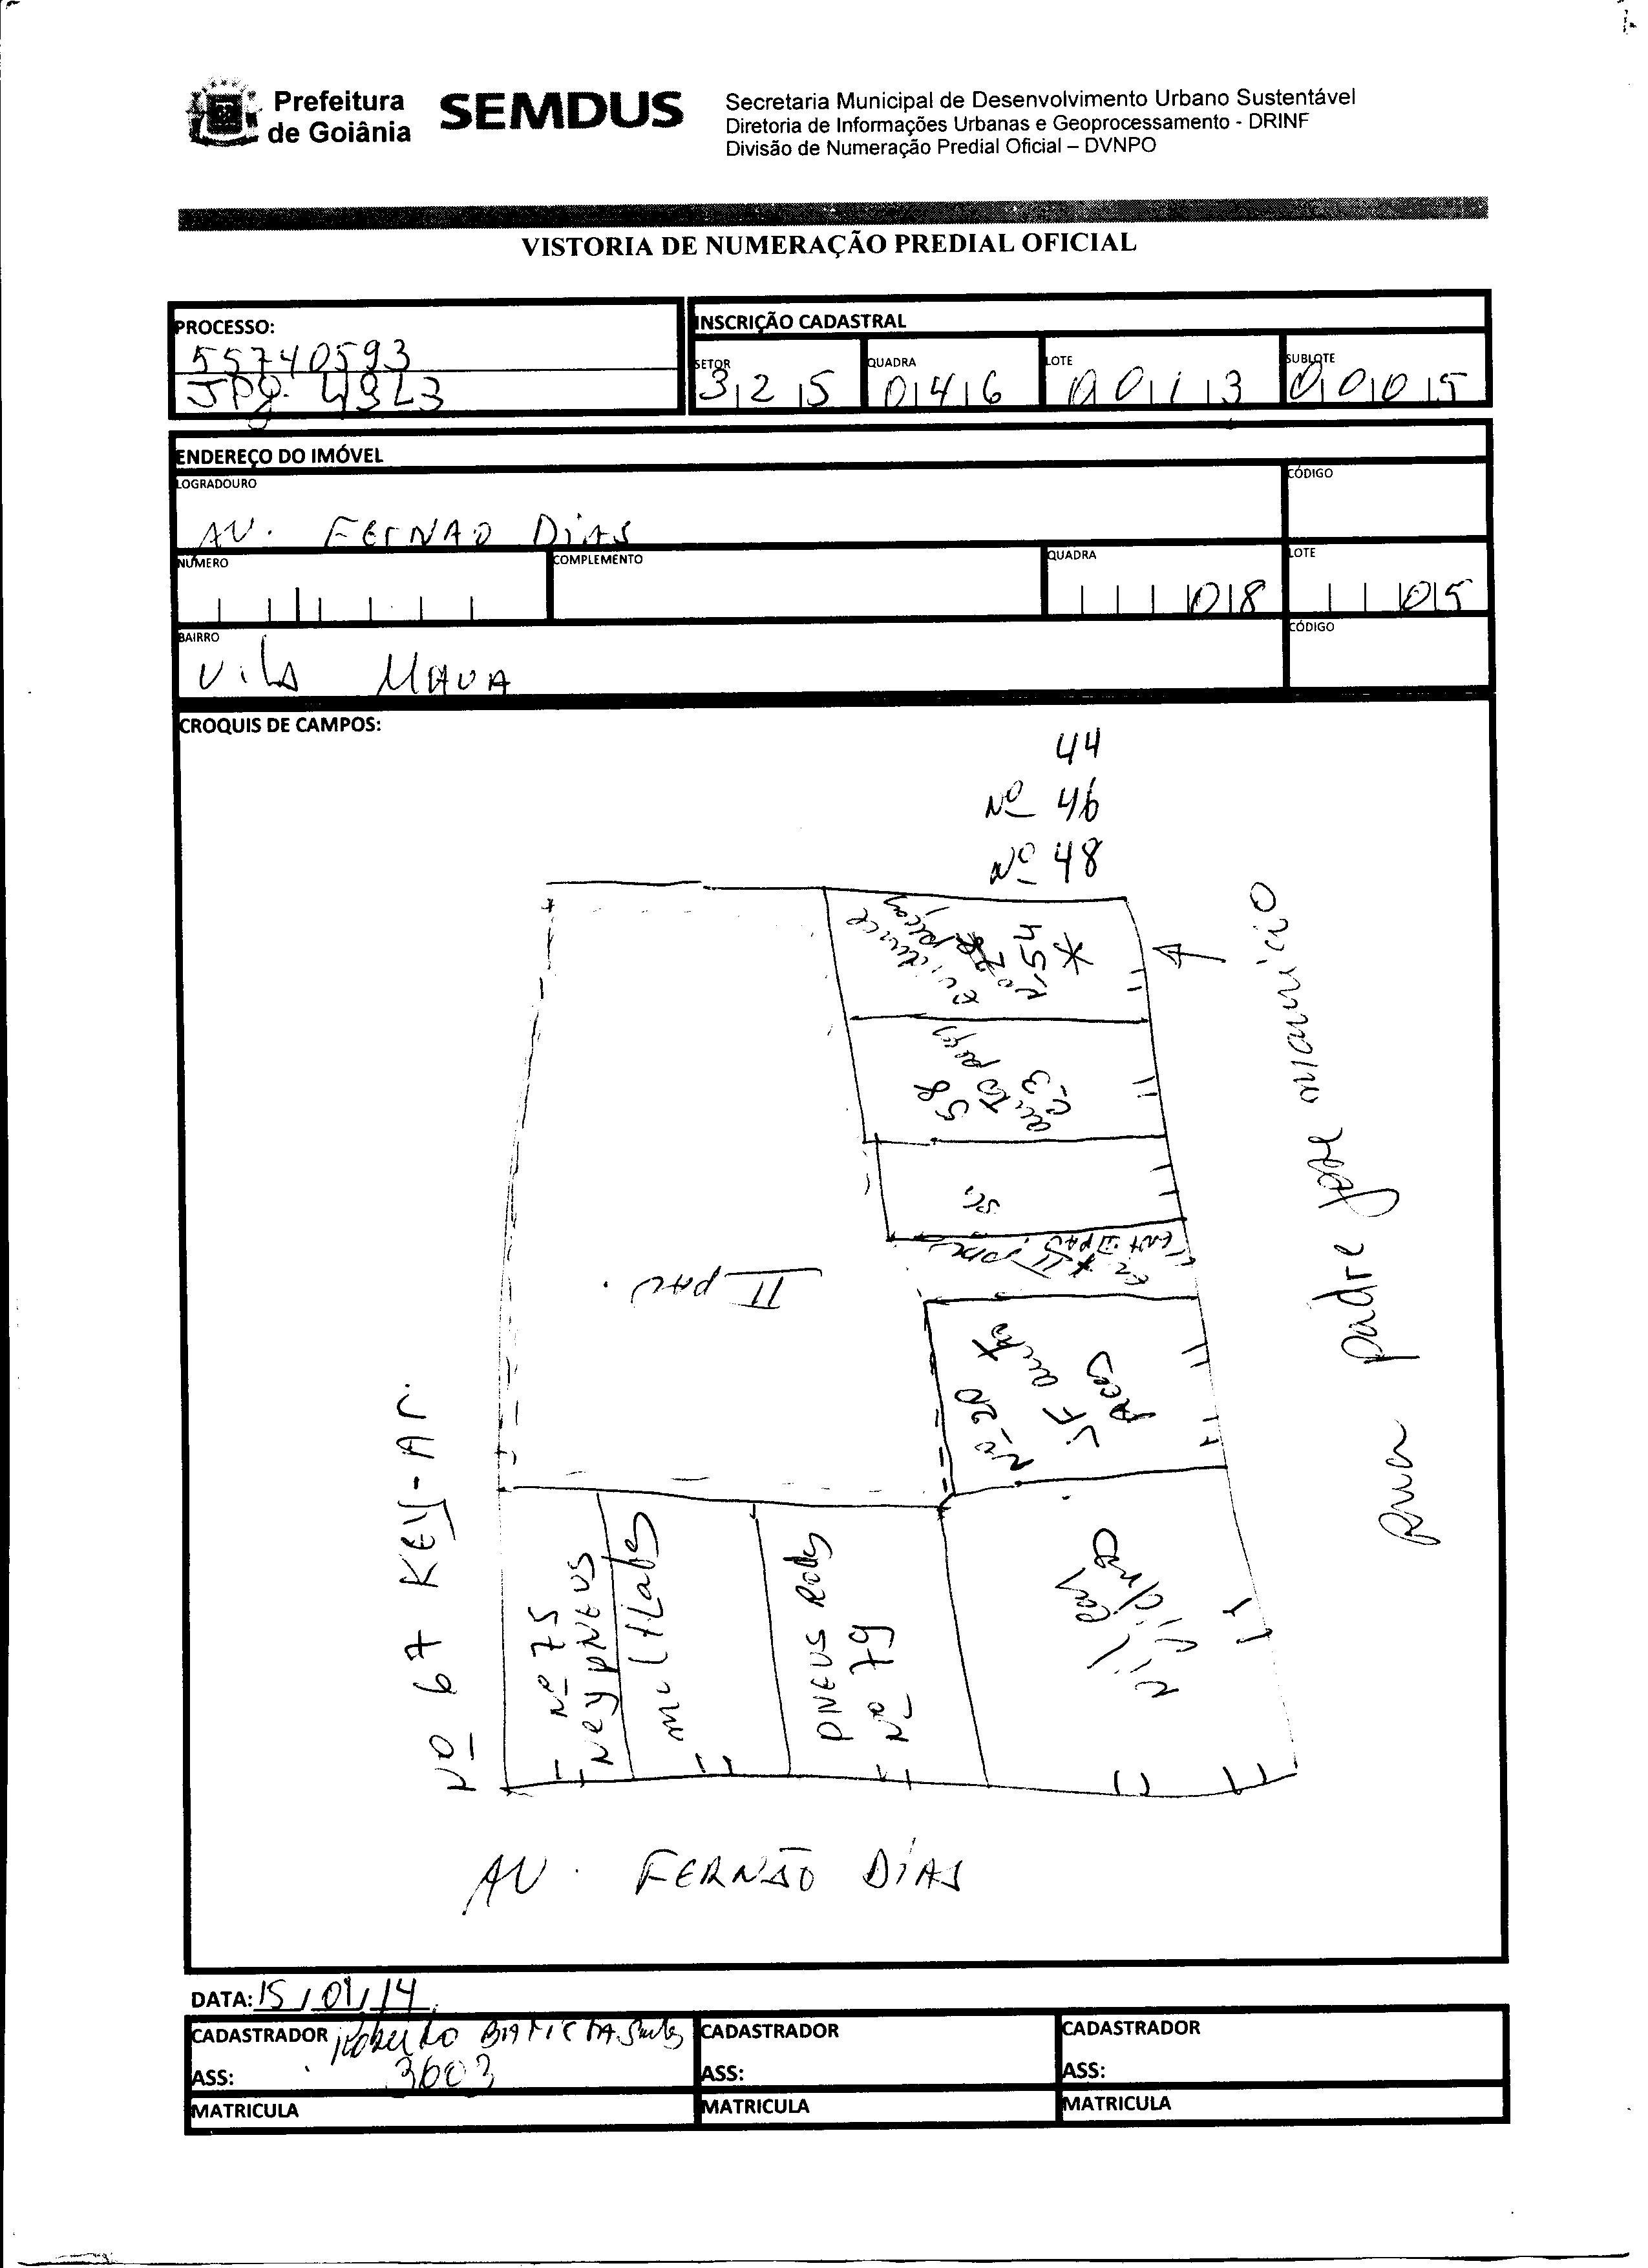 Prefeitura
de Goiânia
SEMDUS
Secretaria Municipal de Desenvolvimento Urbano Sustentável
Diretoria de Informações Urbanas e Geoprocessamento - DRINF
Divisão de Numeração Predial Oficial – DVNPO
VISTORIA DE NUMERAÇÃO PREDIAL OFICIAL
PROCESSO:
55740593
JPG. 4913
INSCRIÇÃO CADASTRAL
SETOR
325
QUADRA
046
LOTE
0013
SUBLOTE
0005
ENDEREÇO DO IMÓVEL
LOGRADOURO
AV. FERNAO DiAS
CÓDIGO
NÚMERO
COMPLEMENTO
QUADRA
018
LOTE
05
BAIRRO
ViLA MAUA
CÓDIGO
CROQUIS DE CAMPOS:
44
Nº 46
Nº 48
54
*
58
auto peças
C-3
SC,
ENT II PAV
II PAV.
Nº 20
JF auto
Nº 67 KEY-AR
Nº 75
Ney PNEUS
multLabes
PNEUS
Nº 79
Vidro
rua padre jose mauricio
AV. FERNÃO DiAS
DATA: 15/01/14
CADASTRADOR Roberto BATISTA Santos
ASS: 3603
MATRICULA
CADASTRADOR
ASS:
MATRICULA
CADASTRADOR
ASS:
MATRICULA